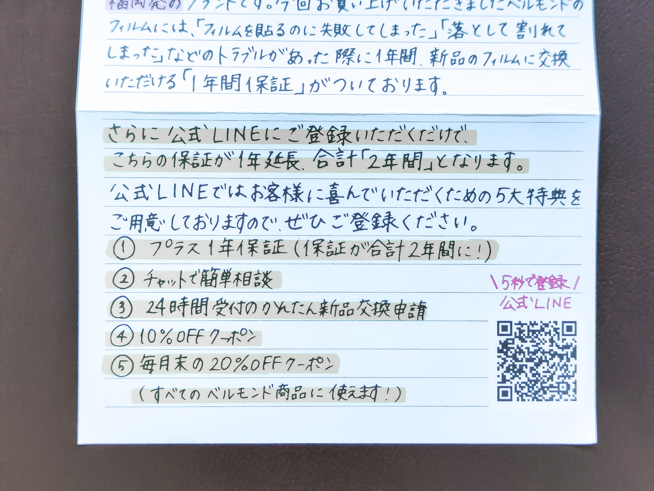 福岡発のブランドです。今回お買い上げいただきましたベルモンドの
フィルムには、「フィルムを貼るのに失敗してしまった」「落として割れて
しまった」などのトラブルがあった際に1年間、新品のフィルムに交換
いただける「1年間保証」がついております。
さらに公式LINEにご登録いただくだけで、
こちらの保証が1年延長、合計「2年間」となります。
公式LINEではお客様に喜んでいただくための5大特典を
ご用意しておりますので、ぜひご登録ください。
① プラス1年保証(保証が合計2年間に!)
② チャットで簡単相談
③ 24時間受付のかんたん新品交換申請
④ 10%OFFクーポン
⑤ 毎月末の20%OFFクーポン
(すべてのベルモンド商品に使えます!)
\5秒で登録/
公式LINE